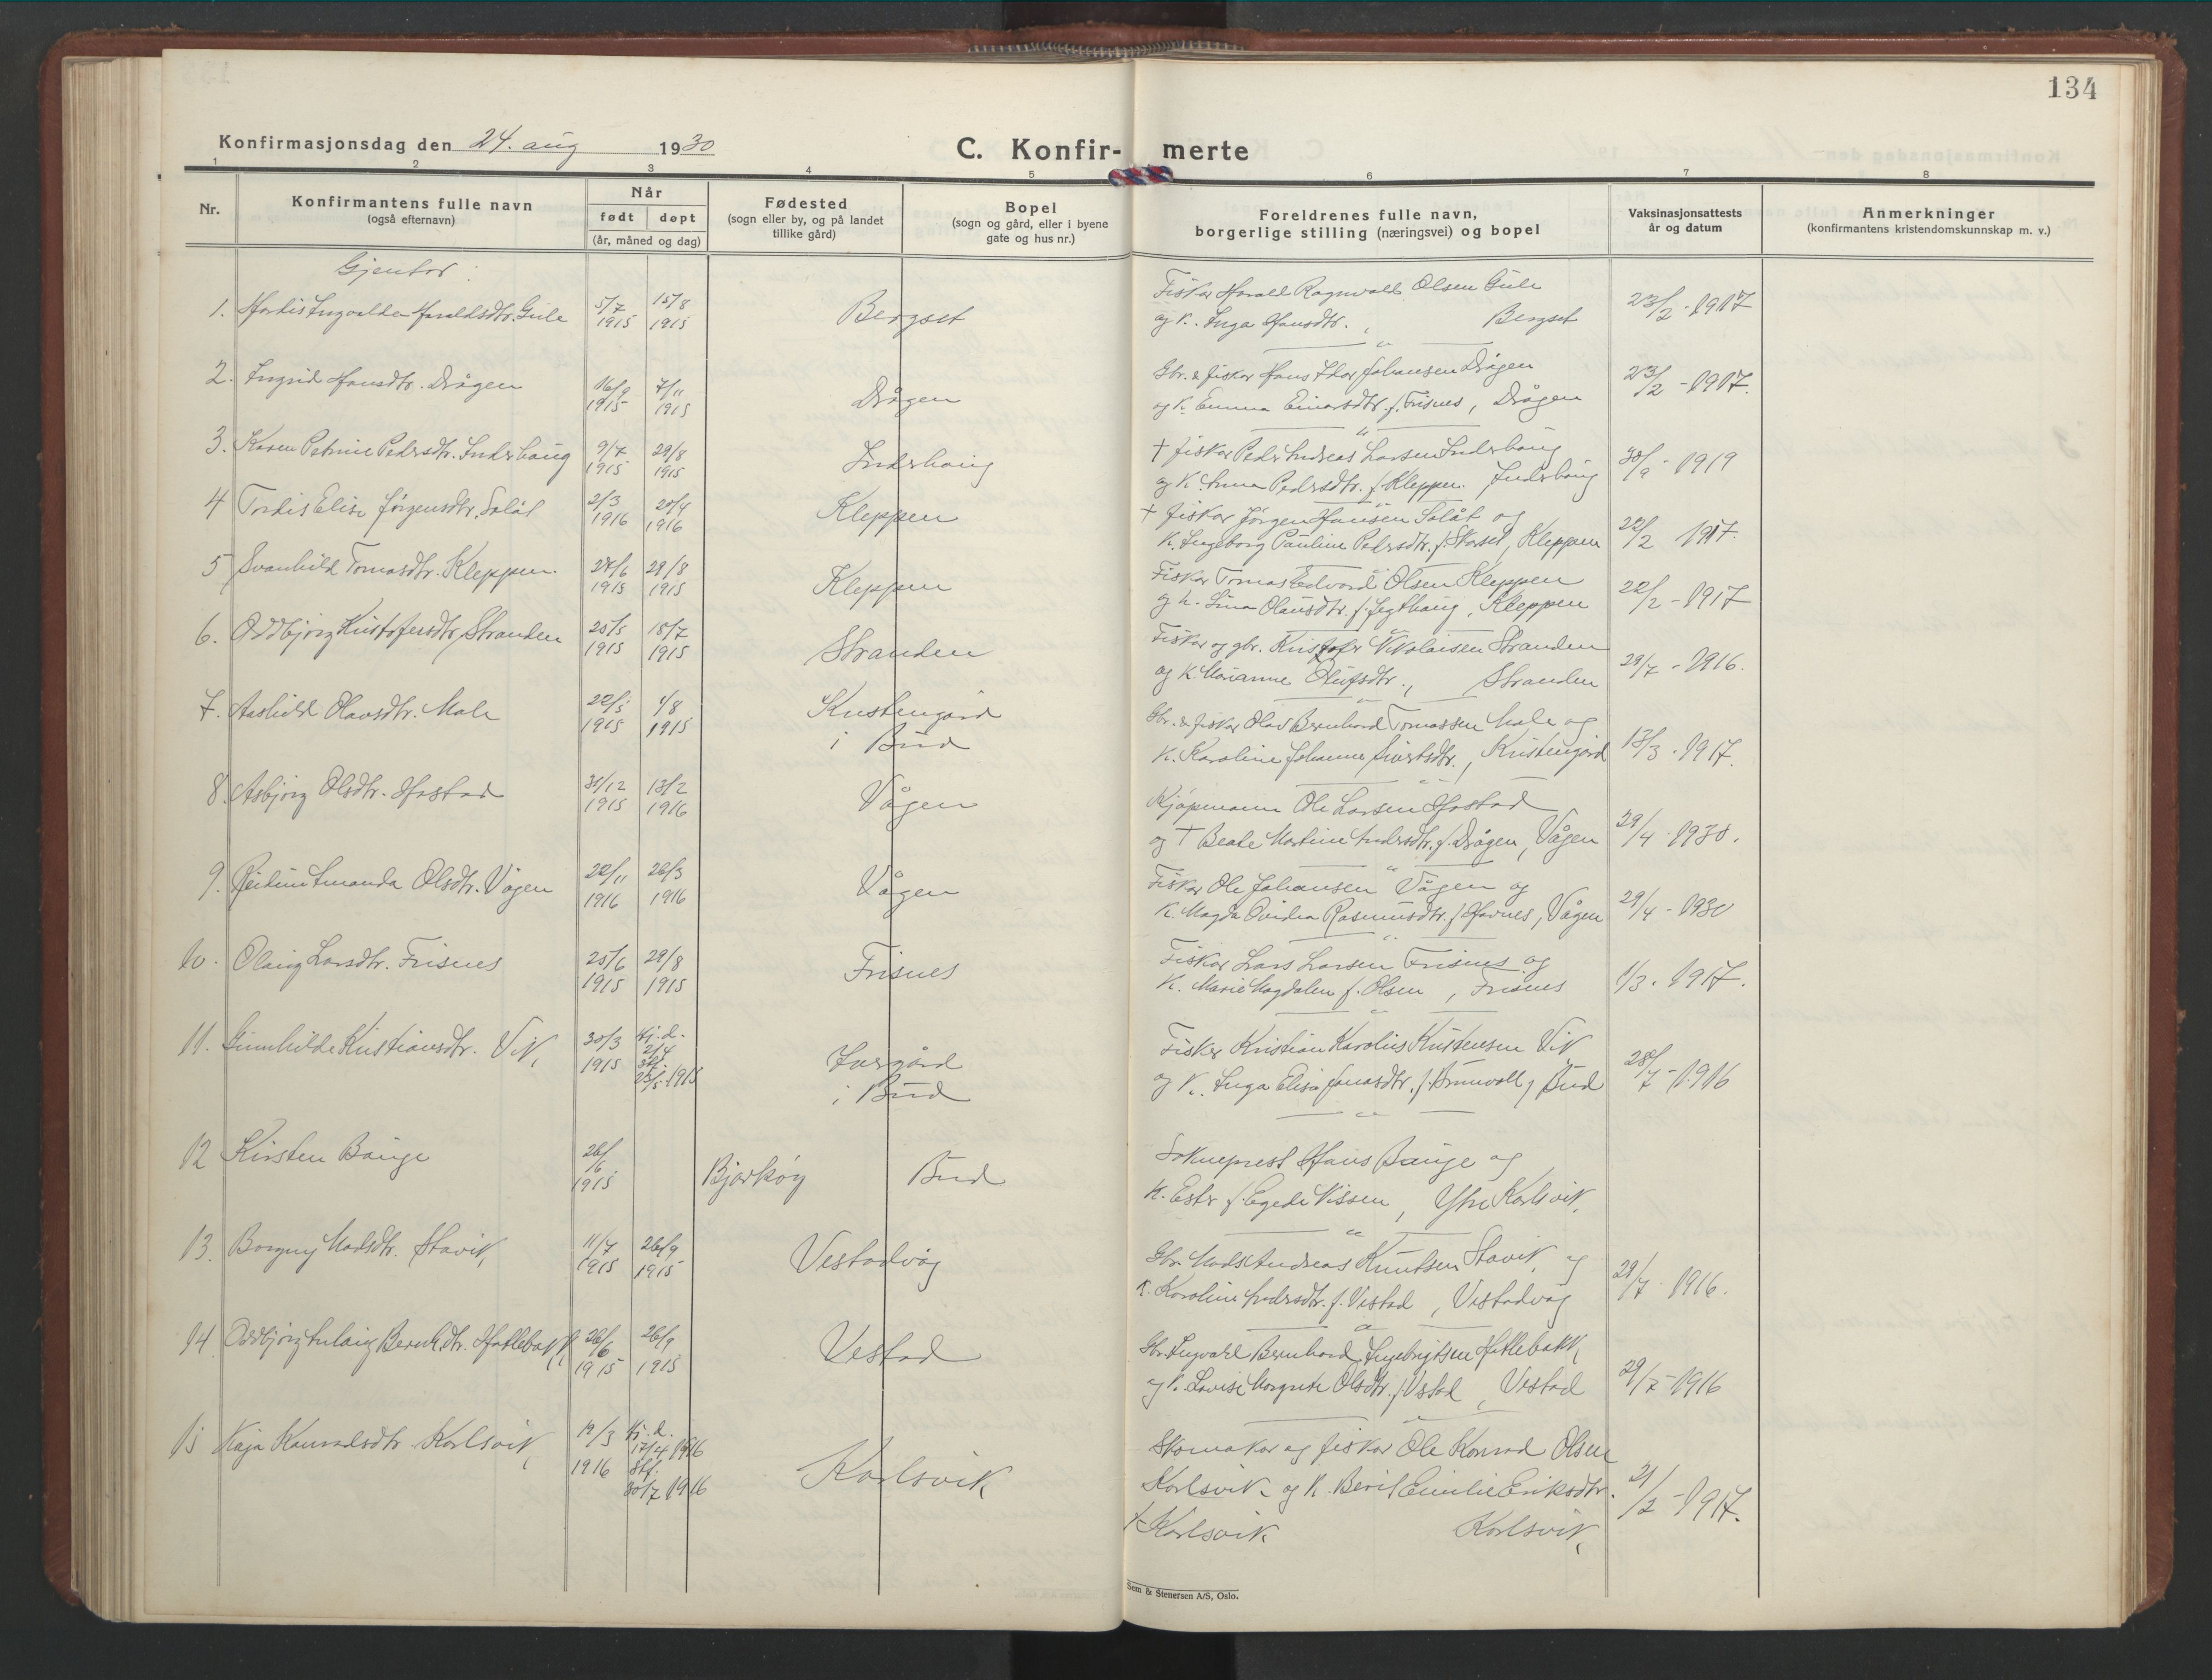 134
Konfirmasjonsdag den 24. aug 1930
C. Konfir- merte
1 2 3 4 5 6 7 8
Nr.
Konfirmantens fulle navn
(også efternavn)
Når
født døpt
(år, måned og dag)
Fødested
(sogn eller by, og på landet
tillike gård)
Bopel
(sogn og gård, eller i byene
gate og hus nr.)
Foreldrenes fulle navn,
borgerlige stilling (næringsvei) og bopel
Vaksinasjonsattests
år og datum
Anmerkninger
(konfirmantens kristendomskunnskap m. v.)
Gjentor:
1. Haraldsdtr. Gule 5/7 1915 15/8 1915 Bergset
Fiskar Harald Ragnvald Olsen Gule
og k. Inga Hansdtr., Bergset
23/2 - 1917
2. Ingrid Hansdtr. Drågen 16/9 1915 7/11 1915 Drågen
Gbr. & fiskar Hans Johansen Drågen
og k. Emma Einarsdtr. f. Frisnes, Drågen
23/2 - 1917.
3. Karen Petrine Pedersdtr. Inderhaug 9/7 1915 29/8 1915 Inderhaug
† fiskar Peder Andreas Larsen Inderhaug
og k. Anna Pedersdtr. f. Kleppen. Inderhaug
30/9 - 1919
4 Tordis Elise Jørgensdtr. Salåt 2/3 1916 20/4 1916 Kleppen
† fiskar Jørgen Hansen Salåt og
k. Ingeborg Pauline Pedersdtr. f. Skarset, Kleppen
22/2 1917.
5 Svanhild Tomasdtr. Kleppen. 1915 29/8 1915 Kleppen
Fiskar Tomas Edvard Olsen Kleppen
og k. Lina Olausdtr. f. Jegthaug, Kleppen
22/2 - 1917
6. Oddbjørg Kristofersdtr. Stranden 20/5 1915 18/7 1915 Stranden
Fiskar og gbr. Kristofer Nikolaisen Stranden
og k. Marianne Olufsdtr., Stranden
29/7 - 1916.
7. Aashild Olavsdtr. Male 22/5 1915 1/8 1915 Kristengård
i Bud
Gbr. & fiskar Olav Bernhard Tomassen Male og
k. Karoline Johanne Sivertsdtr., Kristengård
13/3 - 1917.
8. Asbjørg Olsdtr. Hostad 31/12 1915 13/2 1916 Vågen
Kjøpmann Ole Larsen Hostad
og † Beate Martine Andersdtr. f. Drågen, Vågen
29/4 - 1930.
9. Amanda Olsdtr. Vågen 22/11 1916 26/3 1916 Vågen
Fiskar Ole Johansen Vågen og
k. Magda Rasmusdtr. f. Havnes, Vågen
29/4 - 1930
10. Olaug Larsdtr. Frisnes 25/6 1915 29/8 1915 Frisnes
Fiskar Lars Larsen Frisnes og
k. Marie Magdalen f. Olsen, Frisnes
1/3 - 1917.
11. Gunnhilde Kristiansdtr. Vik 30/3 1915 Hj. d. 2/4 stf. 23/5 1915
i Bud
Fiskar Kristian Karolius Kristensen Vik
og k. Inga Elisa Jonasdtr., Bud
28/7 - 1916
12 Kirsten Bauge 26/6 1915 Bjarkøy Bud
Sokneprest Hans Bauge og
k. Ester f. Egede Nissen, Ytre Karlsvik
13. Borgny Madsdtr. Stavik 11/7 1915 26/9 1915 Vestadvåg
Gbr. Mads Andreas Knutsen Stavik og
k. Karoline Andersdtr. f. Vestad, Vestadvåg
29/7 - 1916.
14 Oddbjørg Anlaug Bernh.dtr. Hatlebakk 26/6 1915 26/9 1915 Vestad
Gbr. Ingvald Bernhard Ingebrigtsen Hatlebakk
og k. Lovise Margrete Olsdtr. f. Vestad, Vestad
29/7 - 1916
15 Kaja Konradsdtr. Karlsvik 19/3 1916 Hj. d. 17/4 1916 stf. 30/7 1916 Karlsvik
Skomakar og fiskar Ole Konrad Olsen
Karlsvik og k. Berit Emilie Eriksdtr.
f. Karlsvik Karlsvik
21/2 - 1917.
Sem & Stenersen A/S, Oslo.